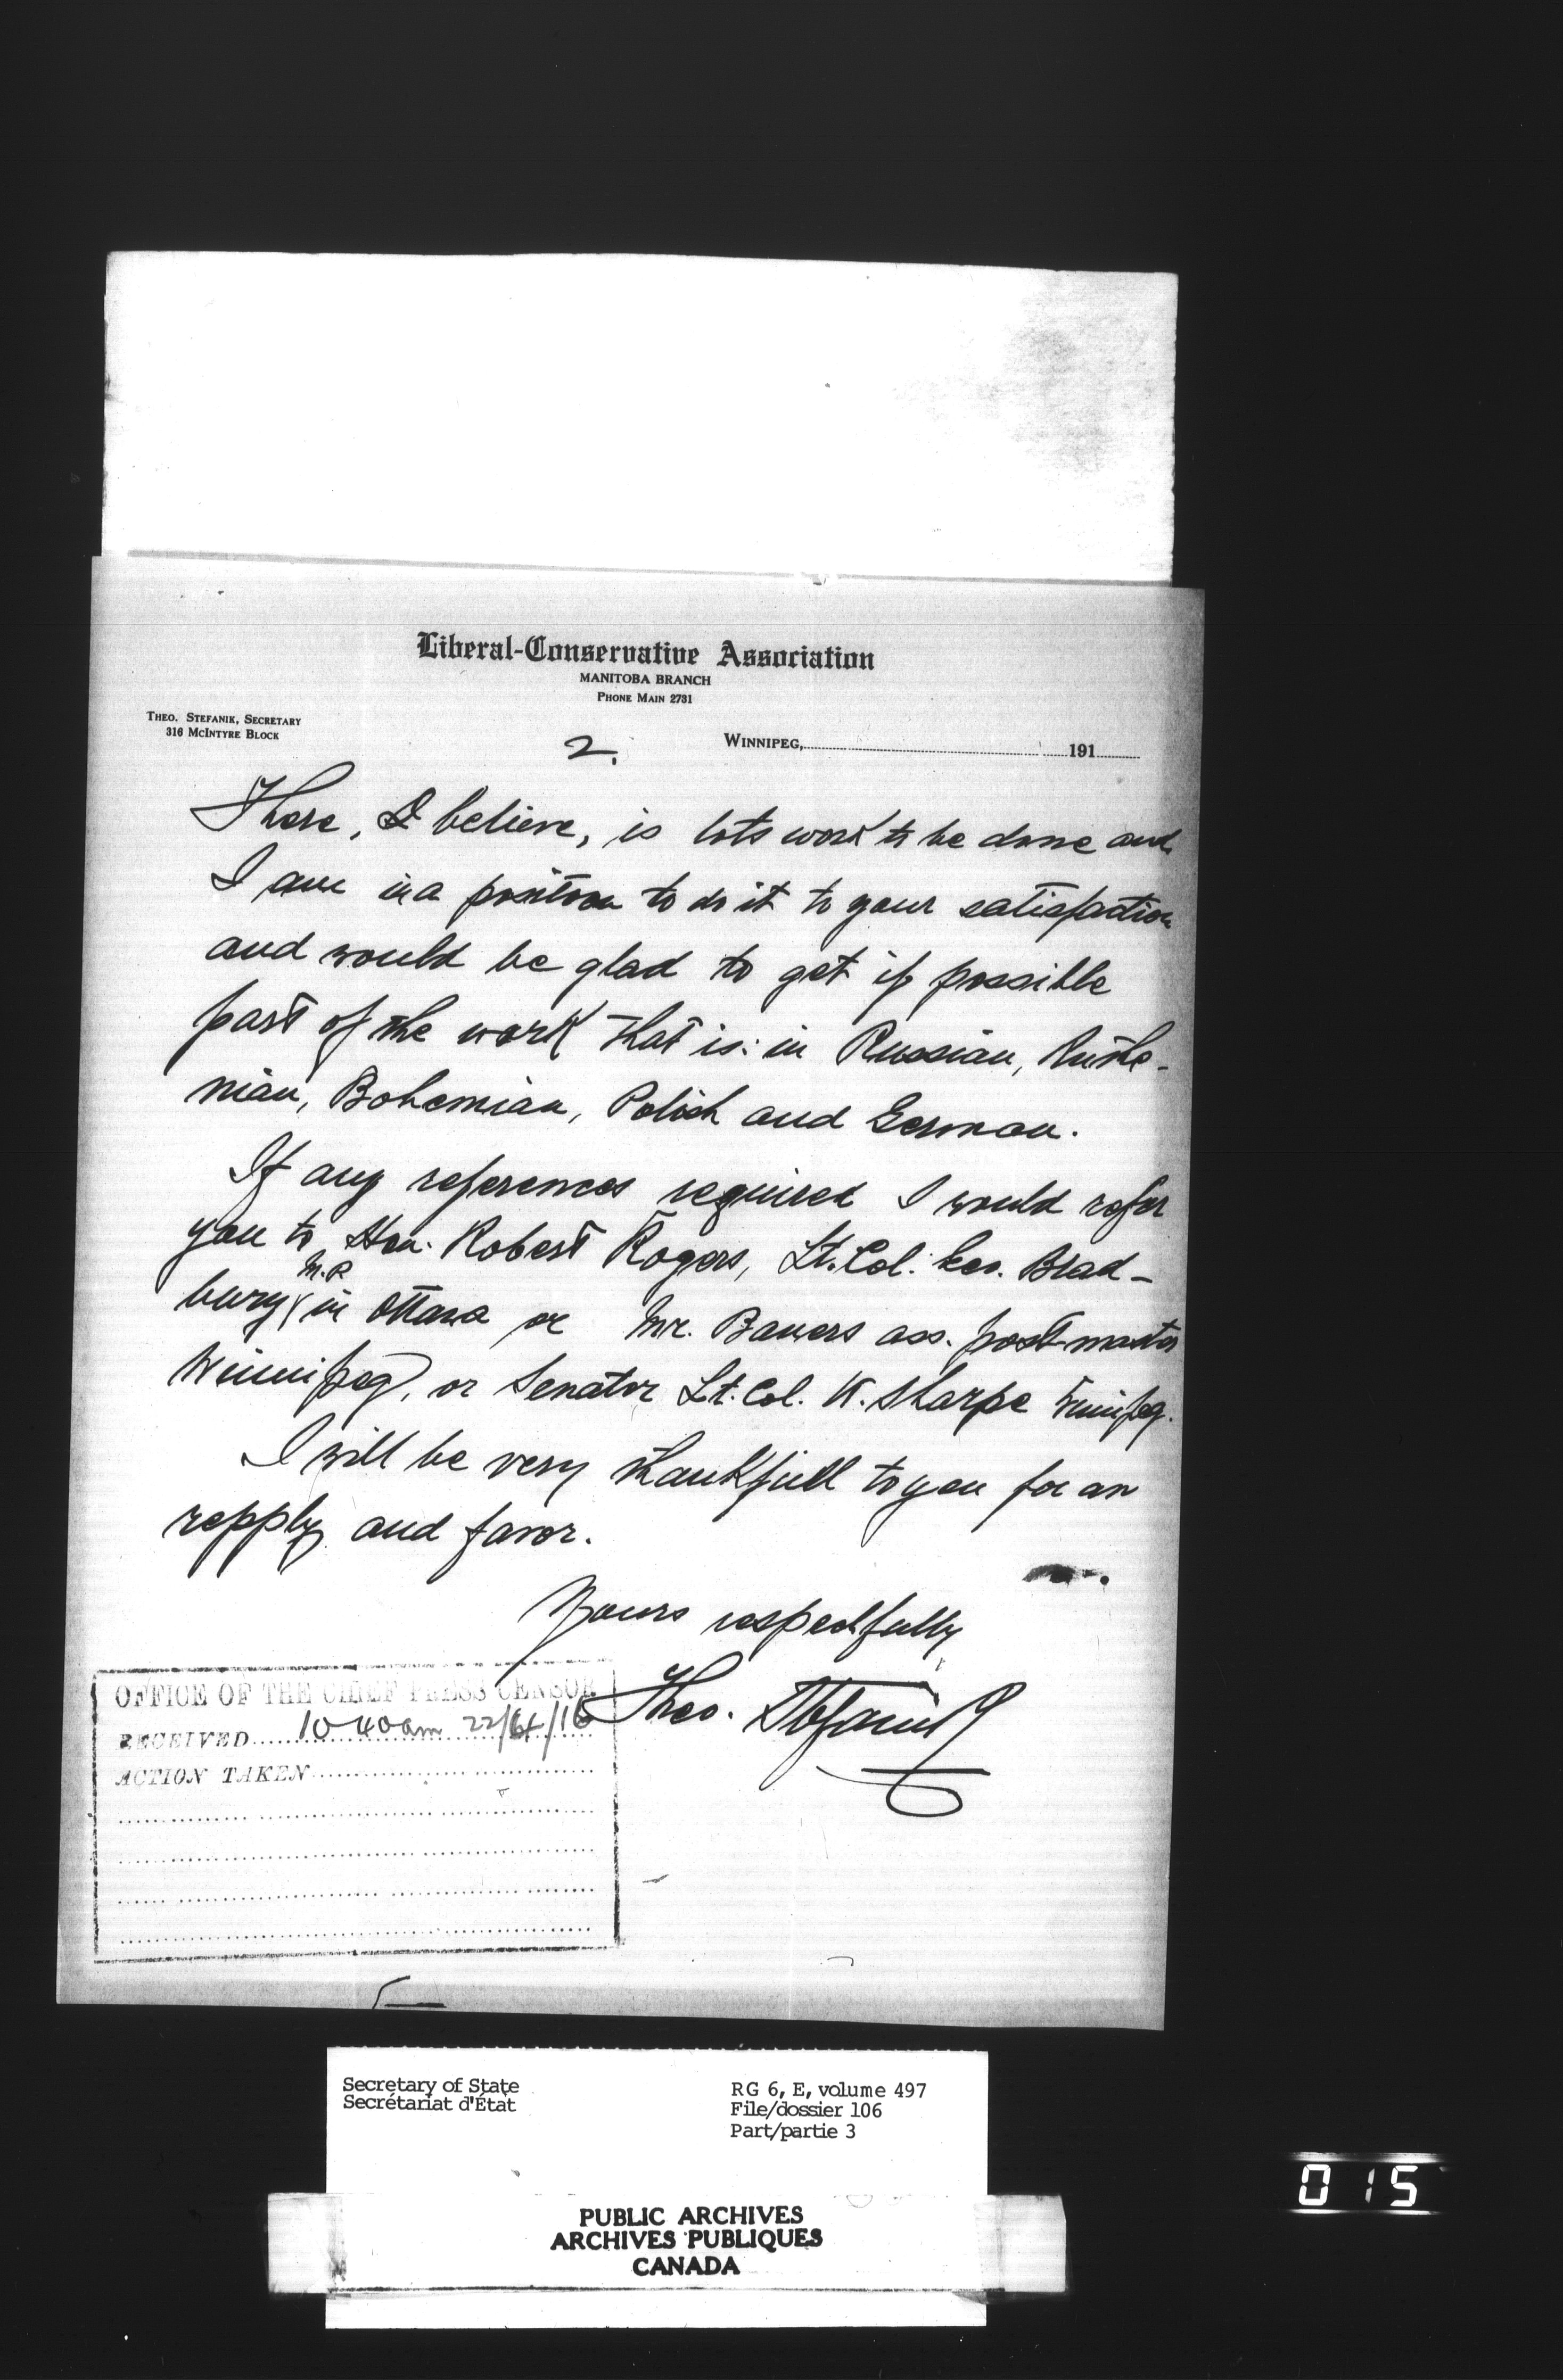 Liberal-Conservative Association
MANITOBA BRANCH
PHONE MAIN 2731
THEO. STEFANIK, SECRETARY
316 MCINTYRE BLOCK
2.
WINNIPEG, 191
There, I believe, is lots work to be done and
I am in a position to do it to your satisfaction
and would be glad to get if possible
part of the work that is: in Russian, Ruthe-
nian, Bohemian, Polish and German.
If any references required I would refer
you to Hon. Robert Rogers, Lt. Col. Geo. Brad-
bury M.P. in Ottawa or Mr. Bowers ass. postmaster
Winnipeg, or Senator Lt. Col. W. Sharpe Winnipeg.
I will be very thankfull to you for an
repply and favor.
Yours respectfully
Theo. Stefanik
OFFICE OF THE CHIEF PRESS CENSOR
RECEIVED 10 40 am 22/6/16
ACTION TAKEN
Secretary of State
Secrétariat d'État
RG 6, E, volume 497
File/dossier 106
Part/partie 3
PUBLIC ARCHIVES
ARCHIVES PUBLIQUES
CANADA
015